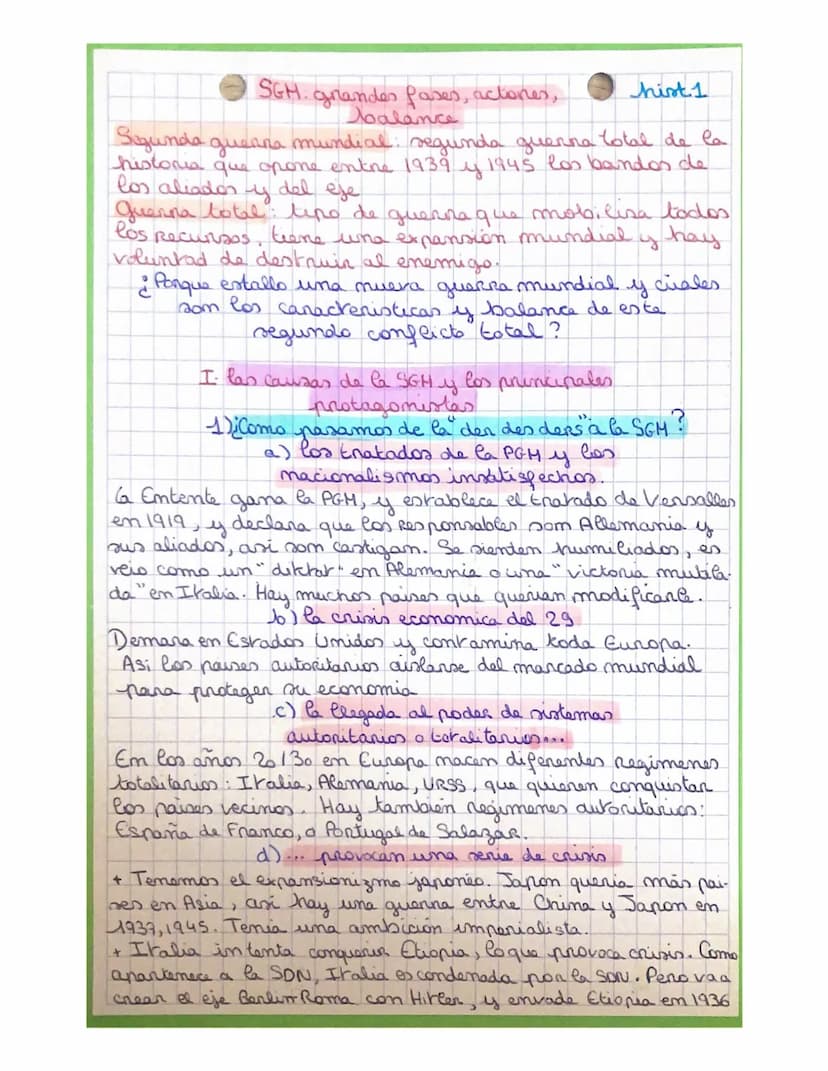 SGH. grandes fases, actores,
hist.1
balance
Segunda guerra mundial: segunda guerra total de la
historia que opone entre 1939 y 1945 los bandos de
los aliados y del eje
Guerra total: tipo de guerra que mobilisa todos
los recursos, tiene una expansión mundial y hay
voluntad de destruir al enemigo.
¿Porque estallo una nueva guerra mundial y cuales
son los caracteristicas y balance de este
segundo conflicto total?
I. las causas de la SGH y los principales
protagonistas
1) ¿Como pasamos de la "der des ders" a la SGM?
a) los tratados de la PGM y los
nacionalismos insatisfechos.
la Entente gana la PGM, y establece el tratado de Versalles
en 1919, y declara que los responsables som Allemania y
sus aliados, asi som castigam. Se sienten humiliados, es
veio como un "diktat" en Alemania o una "victoria mutila-
da" en Italia. Hay muchos paises que querian modificarle.
b) la crisis economica del 29
Demara en Estados Unidos y contamina toda Europa.
Asi los paises autoritarios aislanse del marcado mundial
para proteger su economia
c) la llegada al poder de sistemas
autoritarios o totalitarios...
Em los años 20/30 em Europa nacen diferentes regimenes
totalitarios: Italia, Alemania, URSS, que quieren conquistar
los paises vecinos. Hay también regimenes autoritarios:
España de Franco, o Portugal de Salazar.
d)... provocan una serie de crisis
+ Tenemos el expansionizmo japonés. Japon queria más pai-
ses en Asia, asi hay una guerra entre China y Japon em
1937,1945. Temia una ambición imperialista.
+ Italia intenta conquerir Etiopia, lo que provoca crisis. Como
apartenece a la SDN, Italia es condenada por la SDN. Pero vaa
crear el eje Berlin Roma con Hitler, y envade Etiopia em 1936